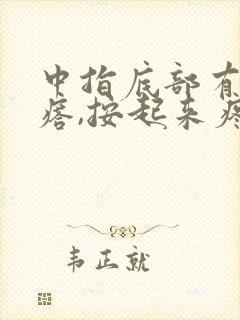 中指底部有
痞,按起来疼
韦正就